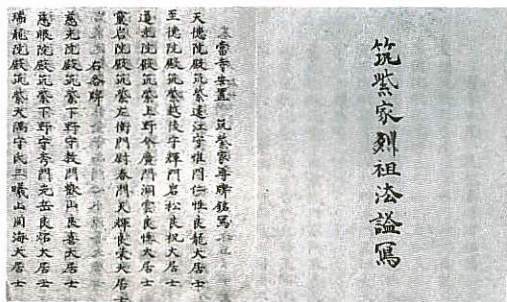 筑紫家列祖法諡寫
雷寺安置 筑紫家尊牌銘寫
天徳院殿筑紫遠江守惟門仁性良龍大居士
至徳院殿筑紫越後守輝門岩松良祝大居士
院殿筑紫上野介廣門洞雲良大居士
靈岩院殿筑紫左衛門尉春門天輝良榮大居士
右各牌
慈光院殿筑紫下野守教門歡山良喜大居士
慈眼院殿筑紫下野守秀門元岳良炤大居士
瑞龍院殿筑紫大隅守氏曦山周海大居士